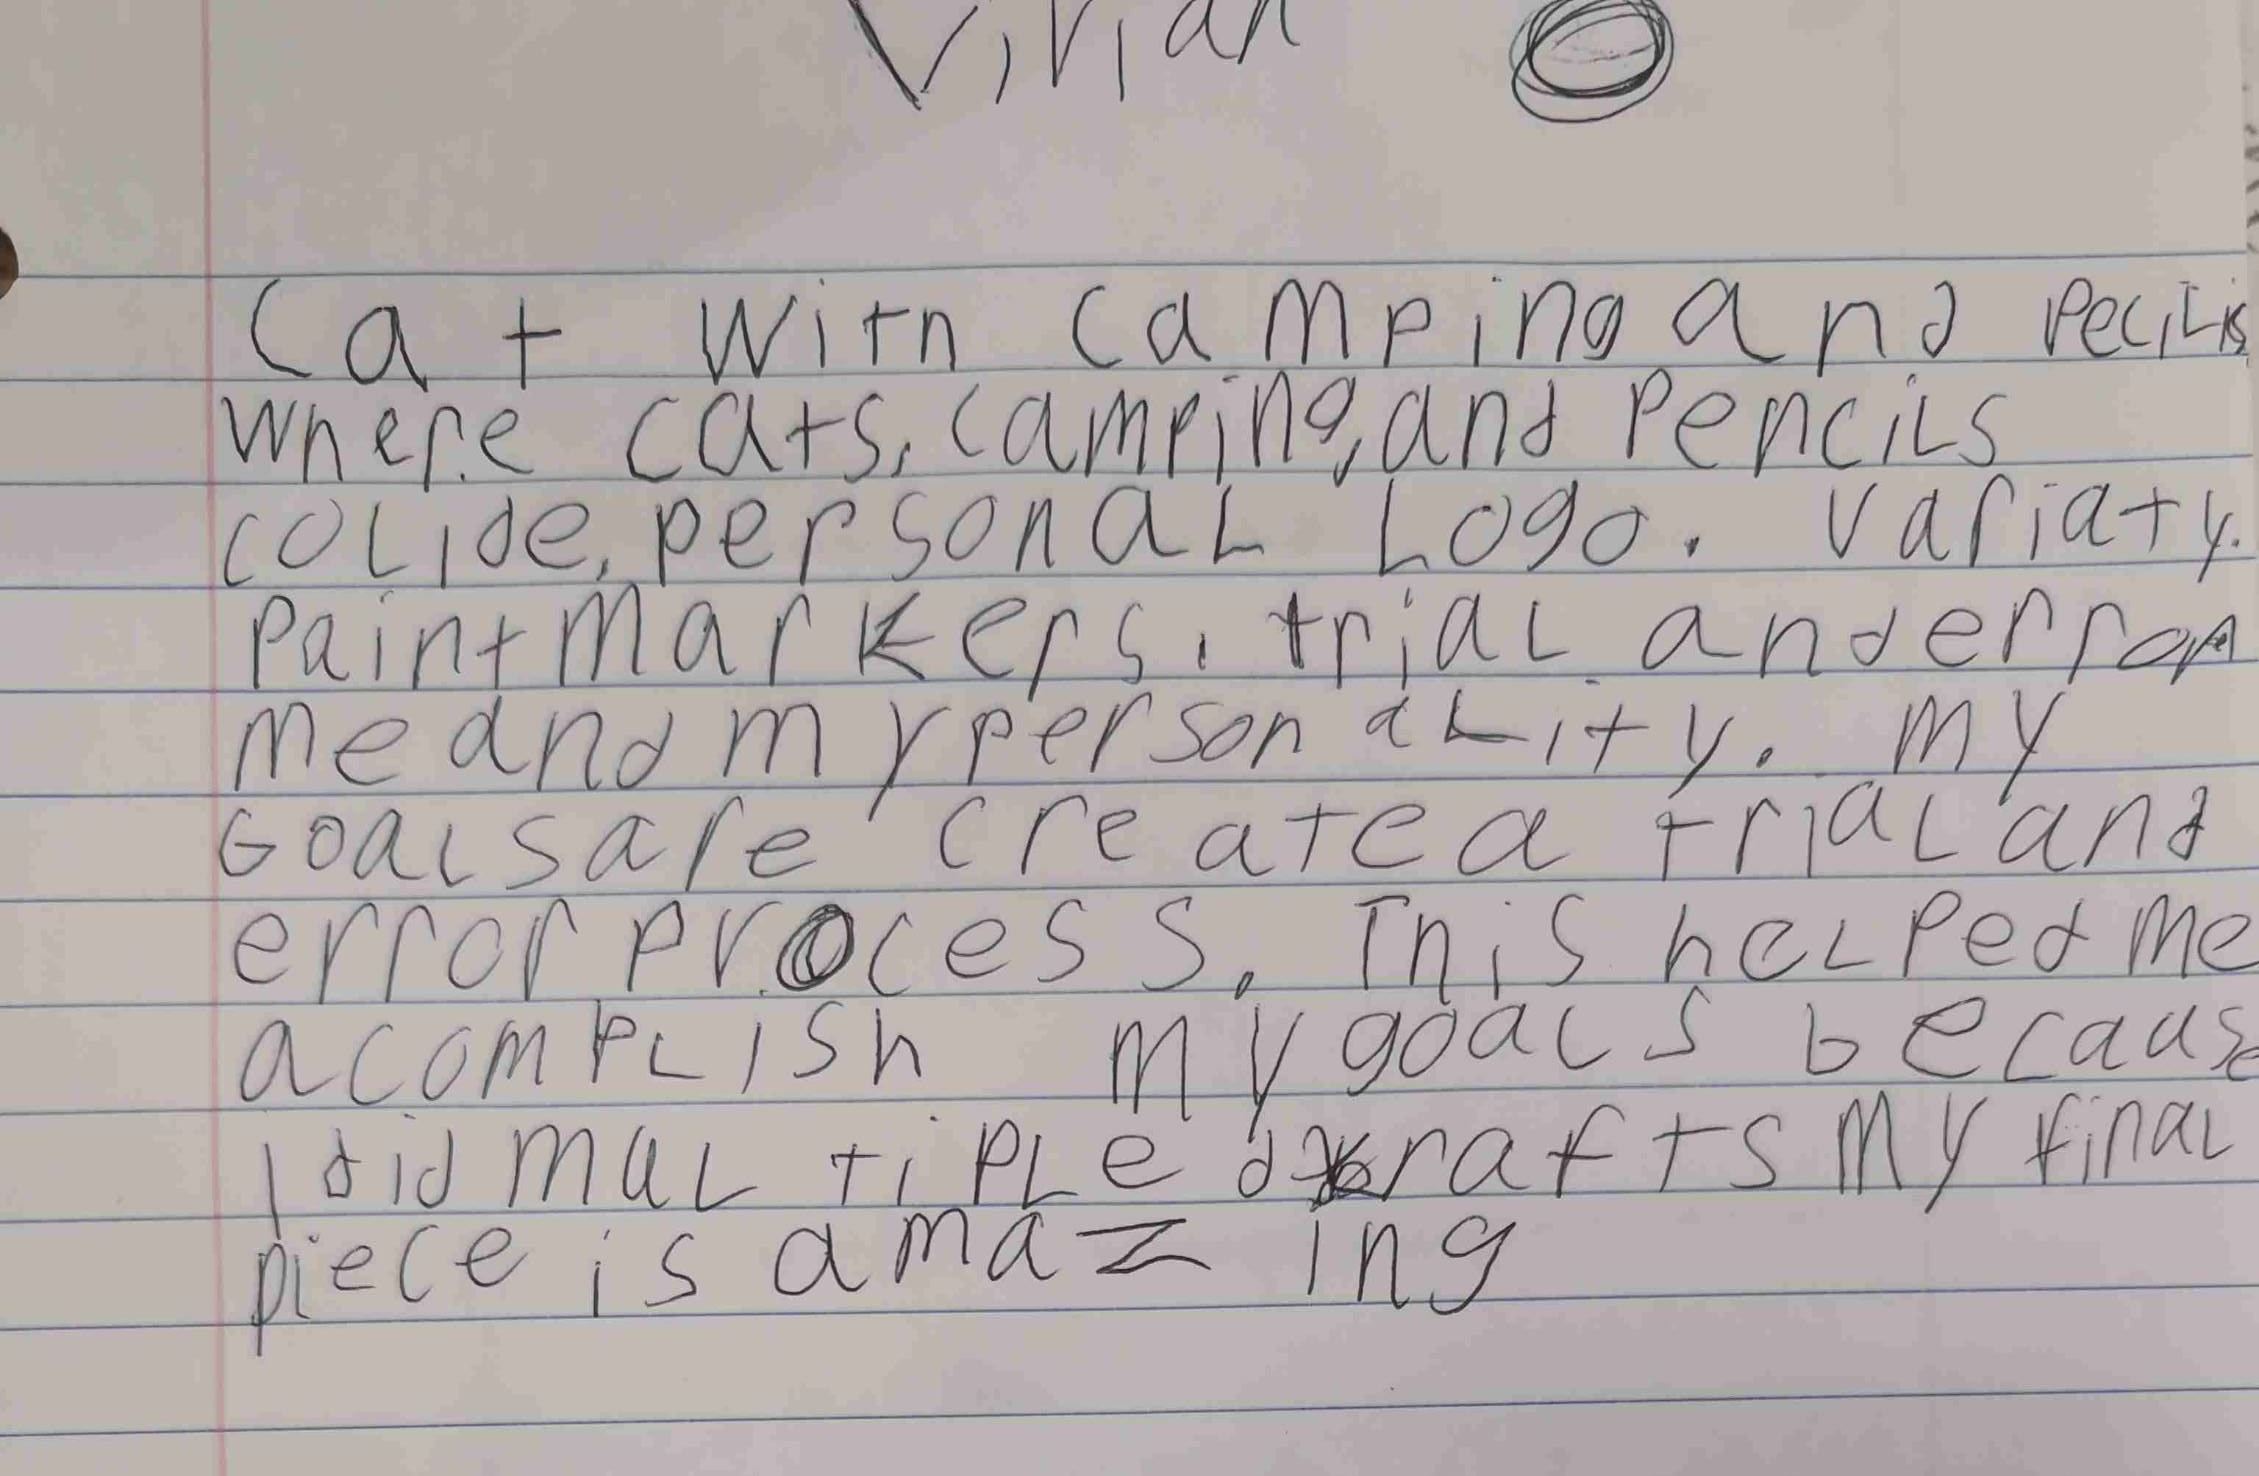 Vivian
Cat with camping and pecils
where cats, camping, and pencils
colide, personal Logo. variaty.
paint markers, trial and error
me and my personality. my
Goals are create a trial and
error process. This helped me
acomplish my goals because
I did multiple drafts my final
piece is amazing